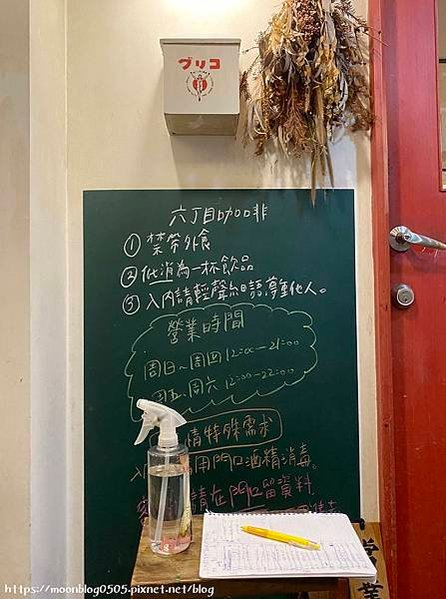 グリコ
六丁目caca啡
① 禁帶外食
② 低消為一杯飲品
③ 入內請輕聲細語尊重他人。
營業時間
周日~周四 12:00-21:00
周五、周六 12:00-22:00
情特殊需求
用門口酒精消毒。
請在門口留資料
營業
https://moonblog0505.pixnet.net/blog